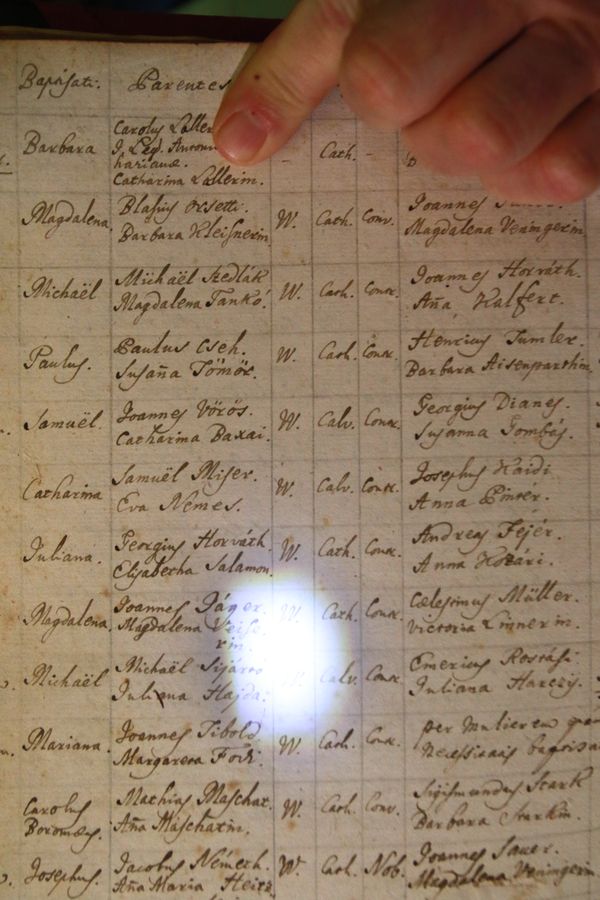 Baptisati. Parentes
Barbara
Carolus
J. Leg.
Catharina Lallerin.
Cath.
Magdalena.
Blasius Orsetti.
Barbara Kleisnerin
W. Cath. Conv.
Joannes
Magdalena Veningerin
Michaël
Michaël Szedlák
Magdalena Tankó.
W. Cath. Contr.
Joannes Horváth.
Aña Kulfert.
Paulus.
Paulus Cseh.
Susaña Tömör.
W. Cath. Contr.
Henricus Tumler.
Barbara
Samuël.
Joannes Vörös.
Catharina Baxai.
W. Calv. Contr.
Georgius Dianes.
Susanna Tombás.
Catharina
Samuël Miser.
Eva Nemes.
W. Calv. Contr.
Josephus Haidi
Anna Pinter.
Juliana.
Georgius Horváth.
Elisabetha Salamon.
W. Cath. Contr.
Andreas Fejér.
Anna Kozári.
Magdalena.
Joannes Jáger.
Magdalena
rin.
Cath. Contr.
Cœlestinus Müller.
Victoria Linnerin.
Michaël
Michaël
Juliana Hajda.
Calv. Contr.
Emericus Rostási
Juliana
Mariana.
Joannes Tibold.
Margareta Fodi.
W. Cath. Contr.
per Mulierem
Carolus
Boromeus.
Mathias Maschat.
Aña Maschatin.
W. Cath. Conv.
Sigismundus Stark
Barbara Starkin.
Josephus.
Jacobus Németh.
Aña Maria
W. Cath. Nob.
Joannes Sauer.
Magdalena Veningerin